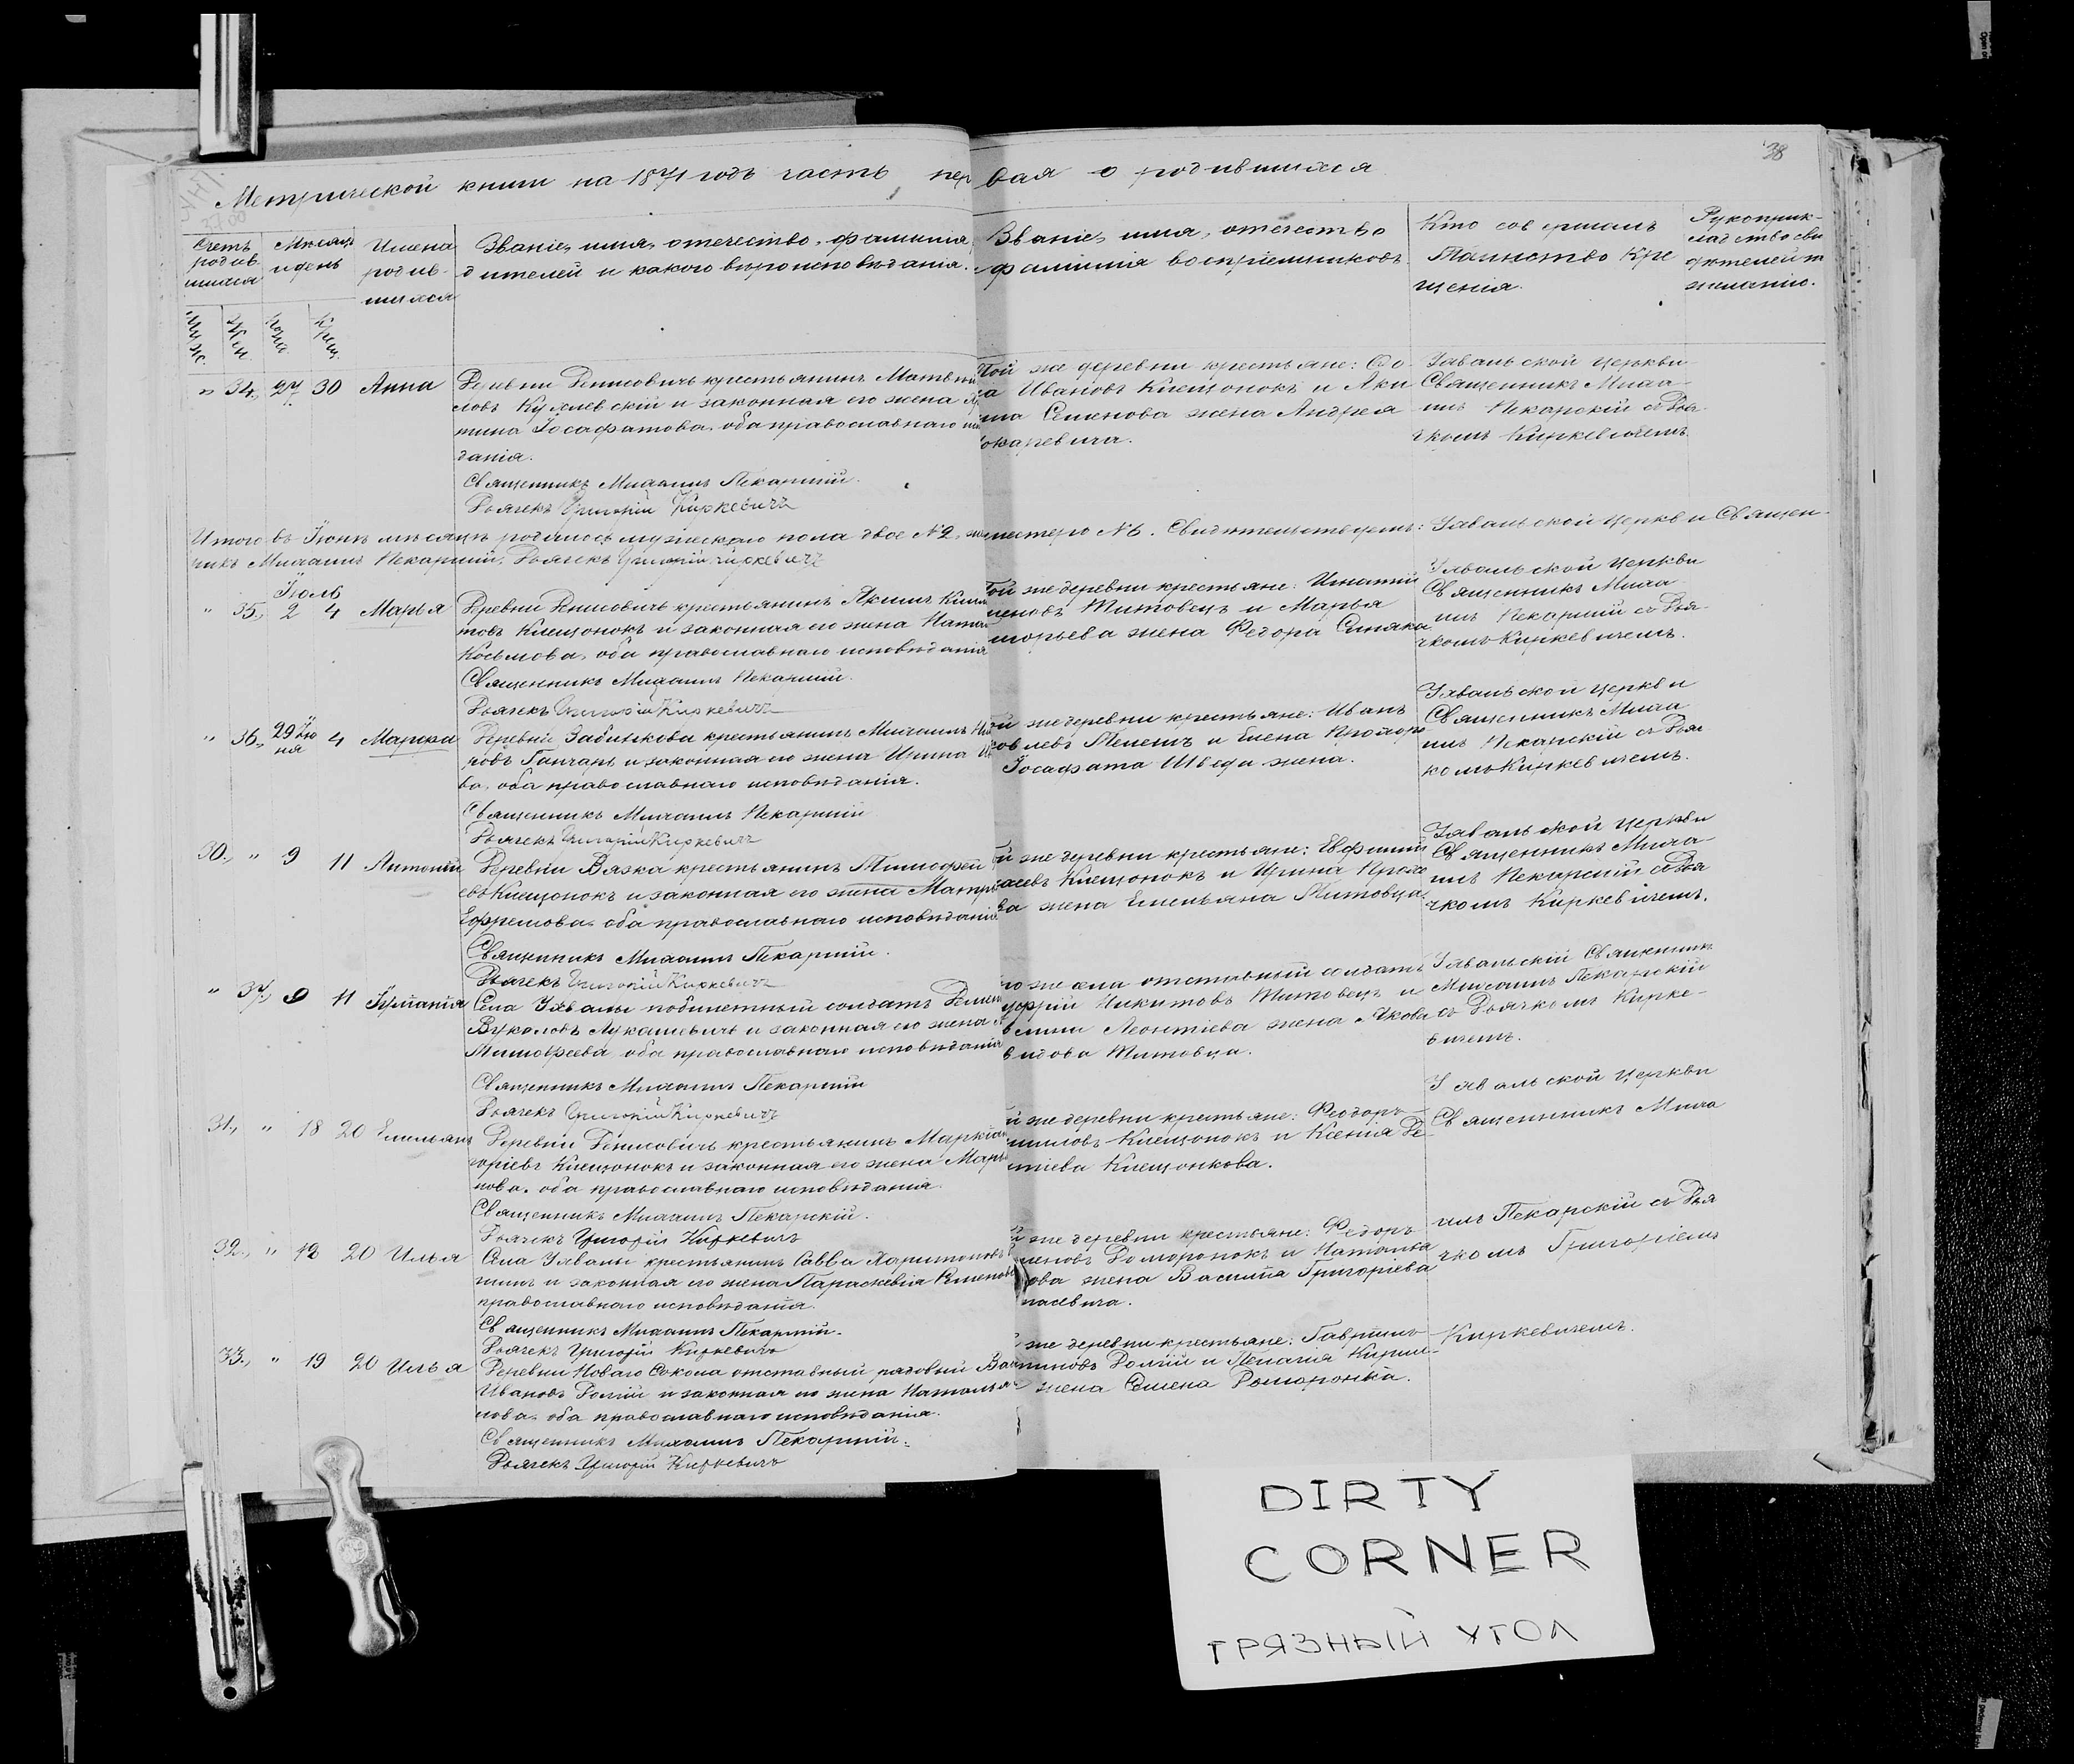 38
Метрической книги на 1871 годъ часть пер вая о родившихся
Счетъ родив шихся
Мѣсяцъ и день
Имена родив- шихся
Званіе, имя, отечество, фамилія,
дителей и какого вѣроисповѣданія.
Званіе, имя, отечество
фамилія воспріемниковъ
Кто совершалъ
Таинство Кре
щенія.
Рукоприк-
ладство сви
дѣтелей по
желанію.
" 34, 27 30 Анна
Деревни Денисовичъ крестьянинъ Матвей
ловъ Кухлевскій и законная его жена
тина Іосафатова, оба православнаго
данія.
Священникъ Михаилъ Пекарскій.
Дьячекъ Григорій Киркевичъ
Той же деревни крестьяне:
Ивановъ Клещонокъ и Аки
Семенова жена Андрея
Язвальской церкви
Священникъ Миха-
илъ Пекарскій съ Дья-
чкомъ Киркевичемъ.
Итого въ Іюнѣ мѣсяцѣ родилось мужескаго пола двое №2, шестеро №6. Свидѣтельствуемъ: Язвальской церкви Священ-
никъ Михаилъ Пекарскій, Дьячекъ Григорій Киркевичъ
Іюль
" 35, 2 4 Марья
Деревни Денисовичъ крестьянинъ Акимъ
товъ Клещонокъ и законная его жена
Косьмова, оба православнаго исповѣданія
Священникъ Михаилъ Пекарскій.
Дьячекъ Григорій Киркевичъ
ой же деревни крестьяне: Игнатій
Титовецъ и Марья
жена Федора Синяка
Язвальской церкви
Священникъ Миха
илъ Пекарскій съ Дья-
чкомъ Киркевичемъ.
" 36, 29 Ію ня 4 Марфа
крестьянинъ Михаилъ
ровъ Ганчаръ и законная его жена Ирина
ва, оба православнаго исповѣданія.
Священникъ Михаилъ Пекарскій
Дьячекъ Григорій Киркевичъ
же деревни крестьяне: Иванъ
и Елена
Іосафата Шведа жена.
Язвальской церкви
Священникъ Миха
илъ Пекарскій съ Дья
комъ Киркевичемъ.
30, " 9 11 Антоній
Деревни Вязка крестьянинъ Тимофей
евъ Клещонокъ и законная его жена
Ефремова, оба православнаго исповѣданія
Священникъ Михаилъ Пекарскій.
Дьячекъ Григорій Киркевичъ
й же деревни крестьяне: Евфимій
Клещонокъ и Ирина
ва жена Емельяна Титовца.
Язвальской церкви
Священникъ Миха-
илъ Пекарскій съ Дья
чкомъ Киркевичемъ.
" 37, 9 11 Іуліанія
Села Язвалы побилетный солдатъ
Вуколовъ Лукашевичъ и законная его жена
Тимофеева оба православнаго исповѣданія
Священникъ Михаилъ Пекарскій
Дьячекъ Григорій Киркевичъ
го же села отставный солдатъ
Никитовъ Титовецъ и
Леонтіева жена Якова
Титовца.
Язвальскій Священникъ
Михаилъ Пекарскій
съ Дьячкомъ Кирке-
вичемъ.
31, " 18 20 Емельянъ
Деревни Денисовичъ крестьянинъ
горіевъ Клещонокъ и законная его жена
нова, оба православнаго исповѣданія.
Священникъ Михаилъ Пекарскій.
Дьячекъ Григорій Киркевичъ
й же деревни крестьяне: Феодоръ
Клещонокъ и Ксенія
Клещонкова.
Язвальской церкви
Священникъ Миха
32, " 18 20 Илья
Села Язвалы крестьянинъ Савва Харитоновъ
и законная его жена Параскевія
православнаго исповѣданія.
Священникъ Михаилъ Пекарскій.
Дьячекъ Григорій Киркевичъ
же деревни крестьяне: Федоръ
Доморонокъ и Наталья
жена Василія Григоріева
илъ Пекарскій съ Дья
чкомъ Григоріемъ
33, " 19 20 Илья
Деревни Новаго Сокола отставный рядовый
Ивановъ Долгій и законная его жена Наталья
нова, оба православнаго исповѣданія.
Священникъ Михаилъ Пекарскій.
Дьячекъ Григорій Киркевичъ
же деревни крестьяне: Гавріилъ
Долгій и Пелагія
жена Семена Доморонка.
Киркевичемъ.
DIRTY
CORNER
ГРЯЗНЫЙ УГОЛ